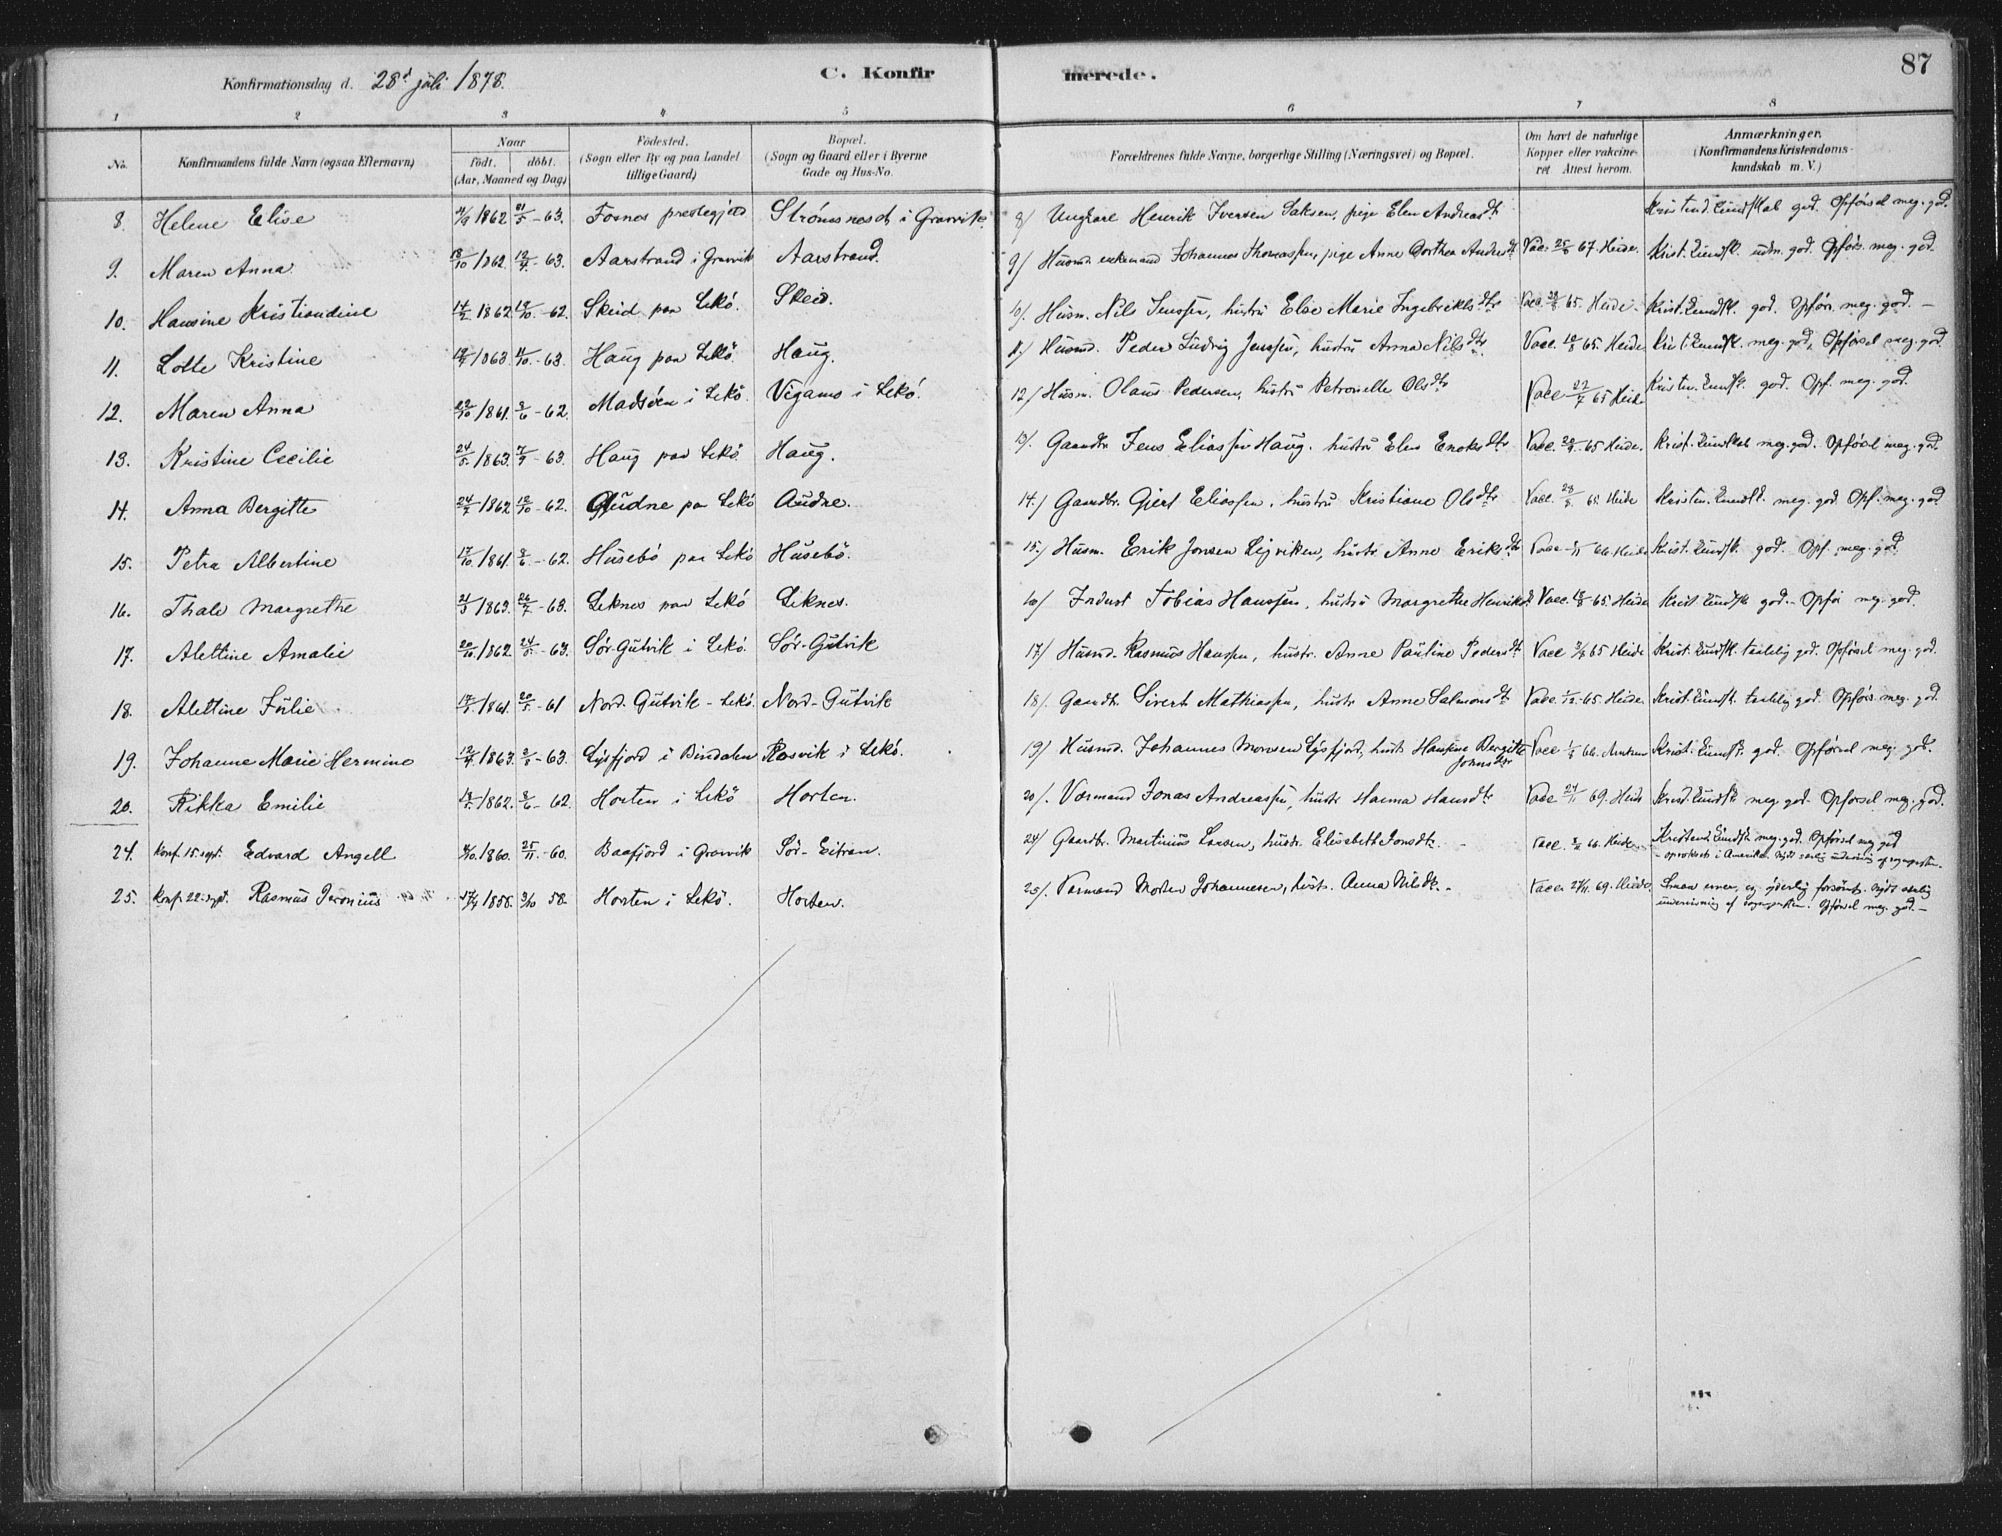 Konfirmationsdag d. 28d juli 1878.
C. Konfirmerede.
87
1 2 3 4 5 6 7 8
No. Konfirmandens fulde Navn (ogsaa Efternavn) Naar födt. döbt. (Aar, Maaned og Dag) Födested. (Sogn eller By og paa Landet tillige Gaard) Bopæl. (Sogn og Gaard eller i Byerne Gade og Hus-No. Forældrenes fulde Navne, borgerlige Stilling (Næringsvei) og Bopæl. Om havt de naturlige Kopper eller vakcineret. Attest herom. Anmærkninger. (Konfirmandens Kristendomskundskab m. V.)
8. Helene Elise 1862 -63. Fosnes prestegjeld Strömsneset i Gravvik 8/ Ungkarl Henrik Iversen, pige Elen Andreasdt. Kristend. kundskab god. Opförsel meg. god.
9. Maren Anna 13/10 1862 12/4 -63. Aarstrand i Gravvik Aarstrand. 9/ Husm. enkemand Johannes Thomassen, pige Anne Dorthea Andersdt. Vacc. 67. Heide. Krist. kundsk. udm. god. Opförs. meg. god.
10. Hansine Kristiandine 14/2 1862 12/10 -62. Skeid paa Lekö. Skeid. 10/. Husm. Nils Jenssen, hustru Else Marie Ingebrikts dtr Vacc. 65. Heide. Krist. kundsk. god. Opförs. meg. god. -
11. Lotte Kristine 1863 -63. Haug paa Lekö. Haug. 11/ Husmd. Peder Ludvig Jenssen, hustru Anna Nils dtr Vacc. 65. Heide. Krist. kundsk. meg. god, Opförsel meg. god
12. Maren Anna 22/10 1861. 2/6 -62. Madsöen i Lekö. Vigams i Lekö. 12/ Husm. Olaus Pedersen, hustru Petronelle Olsdtr Vacc 27/7 65 Heide Kristen. kundsk. god. Opf. meg. god.
13. Kristine Cecilie 24/5 1863. -63. Haug paa Lekö. Haug. 13/. Gaardbr Jens Eliassen Haug. hustru Elen Enoksdtr Vacc. 65 Heide. Krist. kundskab meg. god. Opförsel meg. god.
14. Anna Bergitte 24/7 1862 12/10 -62. Gudne pa Lekö Audne. 14./ Gaardbr. Gjert Eliassen, hustru Kristiane Olsdtr Vacc. 65. Heide Kristen. kundsk. meg. god Opf. meg. god
15. Petra Albertine 17/10 1861. 2/6 -62. Husebö paa Lekö Husebö. 15./ Husm. Erik Jonsen, hustr Anne Eriksdtr Vacc 66. Heide Krist. kundsk. god. Opf. meg. god
16. Thale Margrethe 1863. 26/7 -63. Leknes paa Lekö Leknes. 16/ Inderst Tobias Hanssen, hustru Margrethe Henriks Vacc. 65. Heide Krist. kundsk. god - Opför meg. god.
17. Alettine Amalie 1862. 24/5 -63. Sör-Gutvik i Lekö. Sör-Gutvik 17/ Husmd. Rasmus Hanssen, hustr. Anne Pauline Pedersdt. Vacc 65 Heide Krist. kundsk. taalelig god. Opförsel meg. god.
18. Alettine Julie 1861. 20/5 -61 Nord-Gutvik - Lekö. Nord-Gutvik 18/. Gaardbr. Sivert Mathiassen, hustr Anne Salmonsdt. Vacc. 65. Heide. Krist. kundsk. taalelig god. Opförs. meg. god.
19. Johanne Marie Hermine 1863. -63. Lysfjord i Bindalen Rosvik i Lekö. 19/ Husmd. Johannes Monsen Lysfjord, hustr. Hansine Bergitte Johnsdtr Vacc 66. Krist. kundsk. god. Opförsel meg. god.
20. Rikka Emilie 1862. 2/6 -62. Horten i Lekö Horten. 20/. Værmand Jonas Andreassen, hustr Hanna Hansdt. Vacc 24/11 69. Heide Krist. kundsk meg. god. Opförsel meg. god.
24. Konf. 15. sept. Edvard Angell 1860. 25/11 -60. Baafjord i Gravvik Sör-Eitran. 24/ Gaardbr. Martinius Larsen, hustr. Elisabeth Jonsdt. Vacc. 66. Heide Kristend. kundsk. meg. god. Opförsel meg god
opvokset i Amerika. Nydt særlig undervisning af sognepresten.
25. Konf. 22. sept. Rasmus Jeronius 1858. 3/10 58. Horten i Lekö. Horten. 25/. Vermand Morten Johannesen, hustr. Anna Nilsdt. Vacc. 27/11. 69. Heide. Smaa evner, og yderlig forsömt. Nydt særlig
undervisning af sognepresten. Opförsel meg. god. -